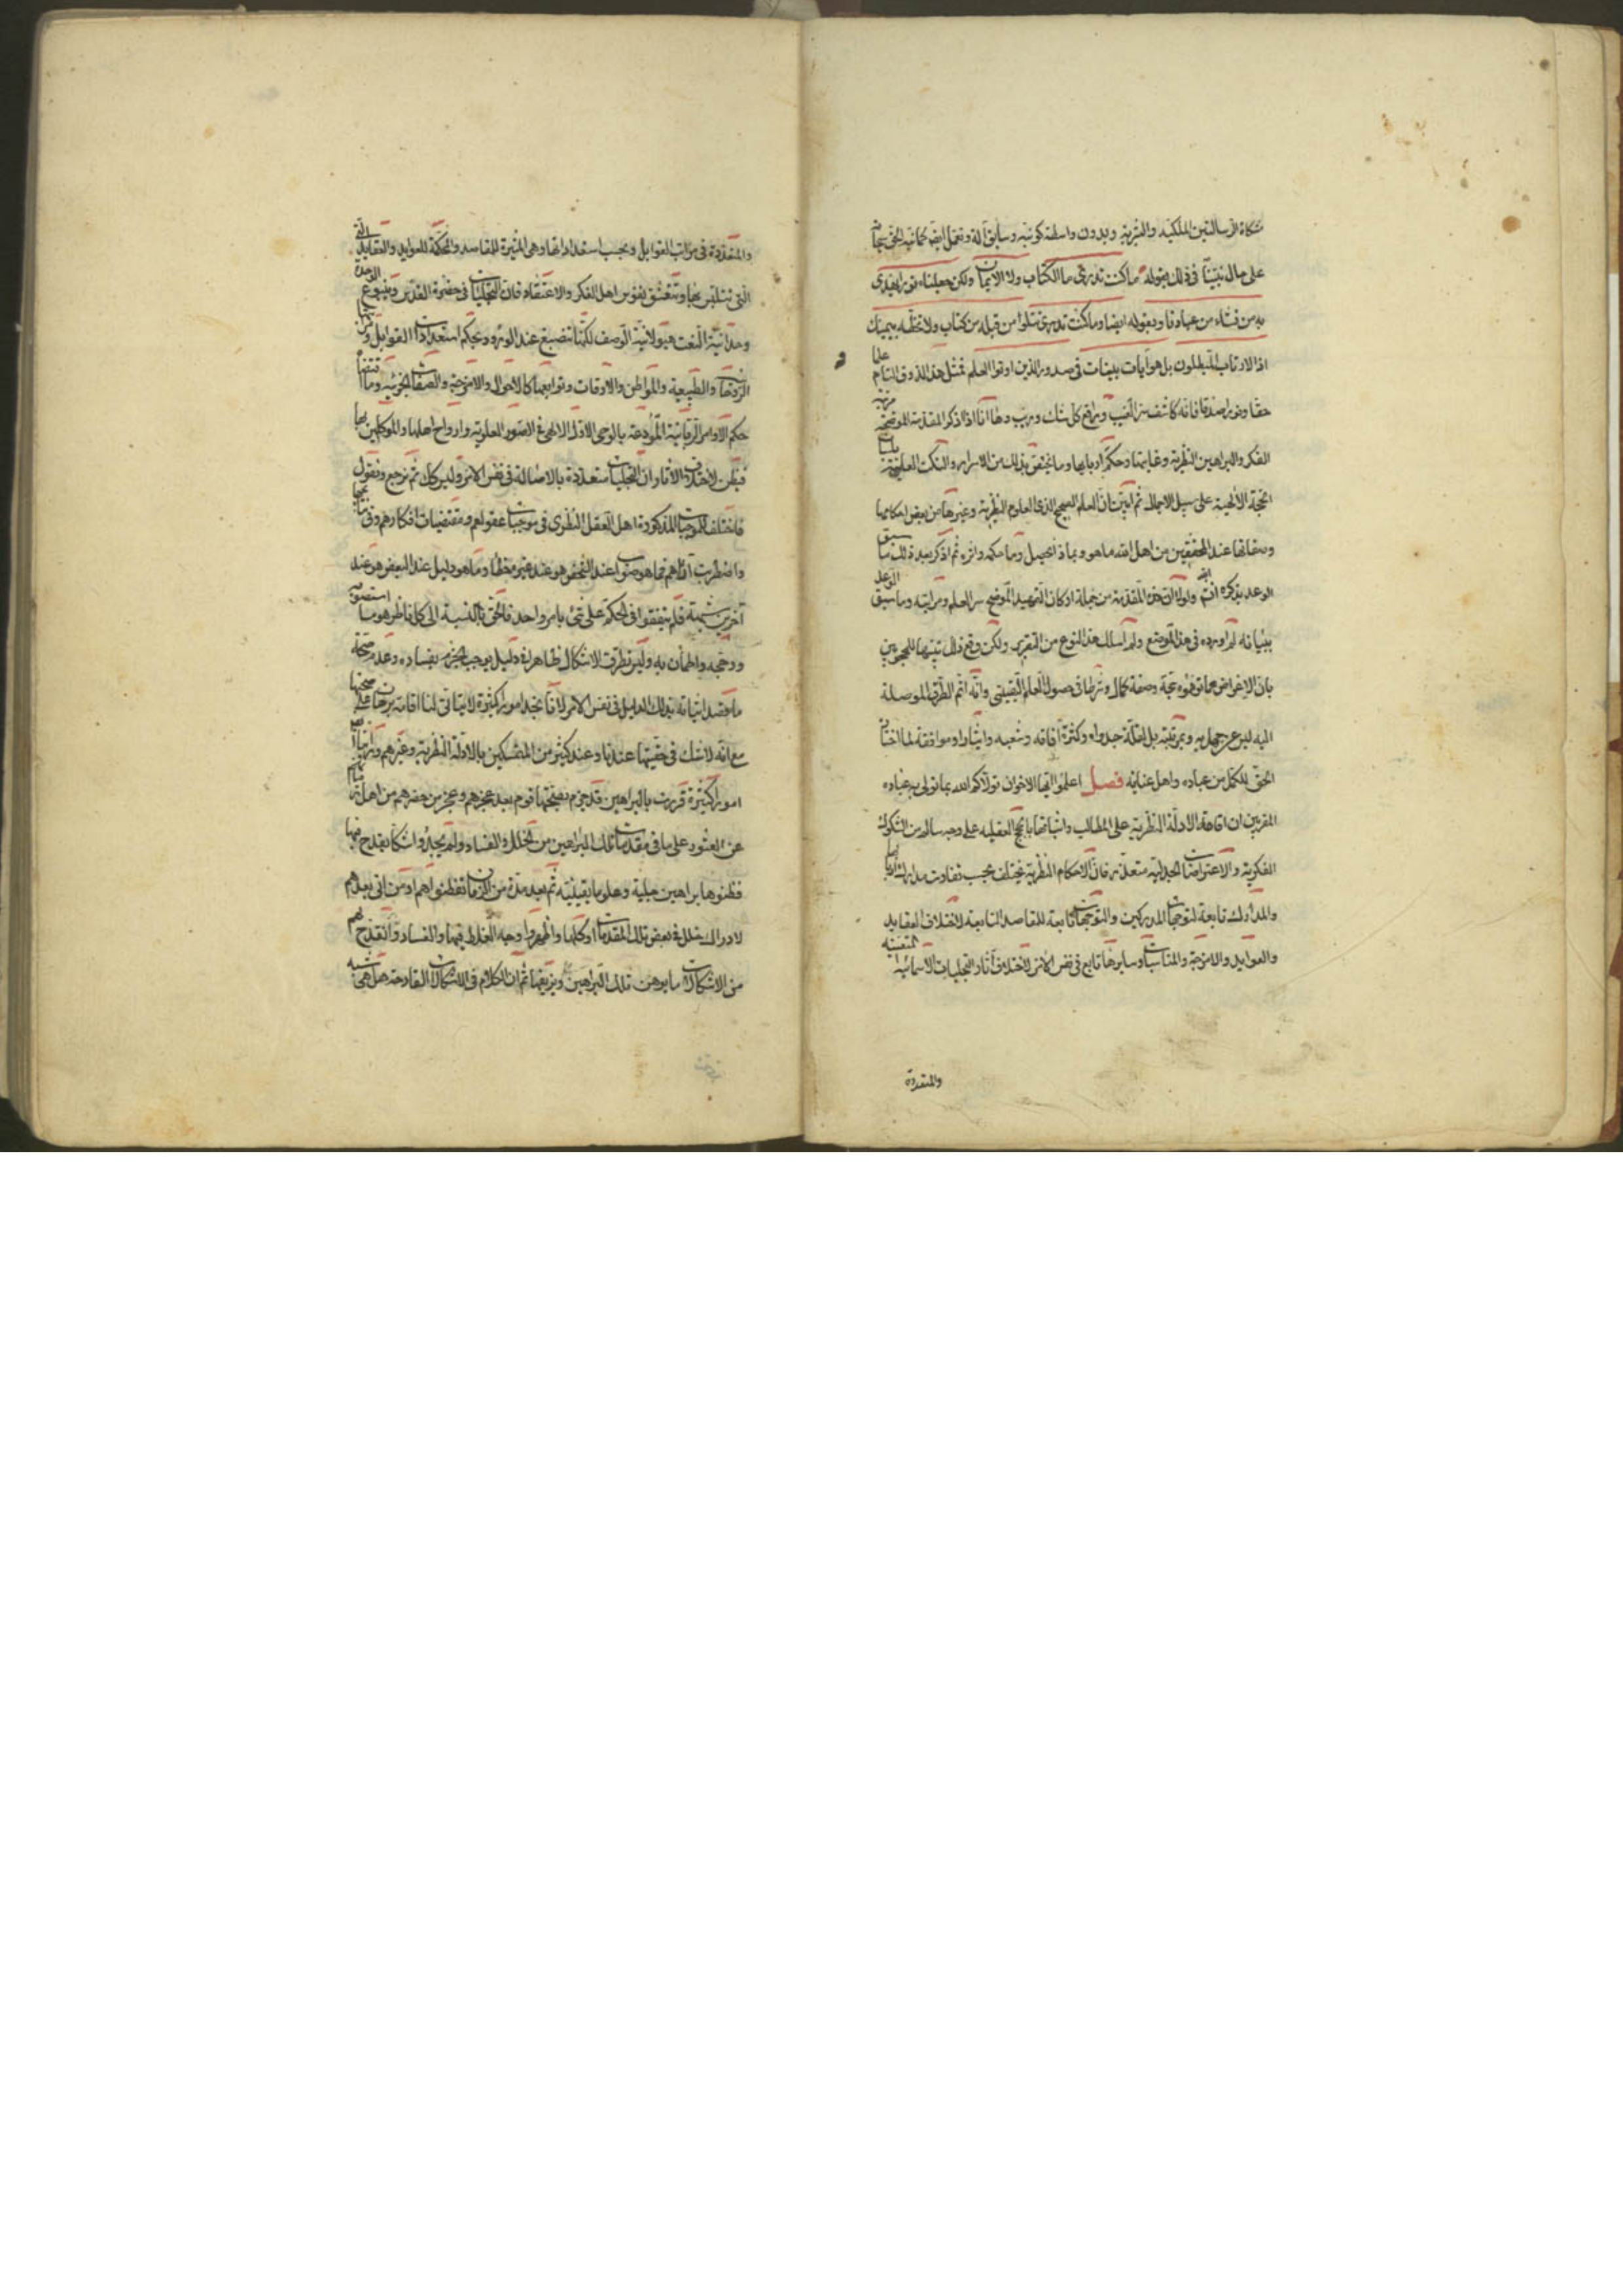 مشكاة الرسالتين الملكية والبشرية وبدون واسطة كونية وسابق آلة وتعمل
على حال نبينا في ذلك بقوله ما كنت تدري ما الكتاب ولا الايمان ولكن جعلناه نورا نهدي
به من نشاء من عبادنا وبقوله ايضا وما كنت تتلوا من قبله من كتاب ولا تخطه بيمينك
اذا لارتاب المبطلون بل هو آيات بينات في صدور الذين اوتوا العلم فمثل هذا الذوق التام
حقا ونورا صدقا فانه كاشف سر الغيب ورافع كل شك وريب وها انا اذكر المقدمة الموضحة
الفكر والبراهين النظرية وغايتها وحكم اربابها وما يختص بذلك من الاسرار والنكت العلية
الحجة الالهية على سبيل الاجمال ثم ابين ان العلم الصحيح الذي العلوم النظرية وغيرها من بعض احكامها
وصفاتها عند المحققين من اهل الله ما هو وبماذا يحصل وما حكمه واثره ثم اذكر بعد ذلك ما سبق
الوعد بذكره ان شاء الله ولولا ان هذه المقدمة من جملة اركان التمهيد الموضح سر العلم ومراتبه وما سبق الوعد
ببيانه لم اورده في هذا الموضع ولم اسلك هذا النوع من التقرير ولكن وقع ذلك تنبيها للمحجوبين
بان الاعراض عما توهموه حجة وصفة كمال وشرطا في حصول العلم اليقيني وانه اتم الطرق الموصلة
اليه ليس عن جهل به وبمرتبته بل لقلة جدواه وكثرة آفاته وشعبه وايثارا وموافقة لما اختاره
الحق للكمل من عباده واهل عنايته فصل اعلموا ايها الاخوان تولاكم الله بما تولى به عباده
المقربين ان اقامة الادلة النظرية على المطالب واثباتها بالحجج العقلية على وجه سالم من الشكوك
الفكرية والاعتراضات الجدلية متعذر فان الاحكام النظرية تختلف بحسب تفاوت مدارك اربابها
والمدارك تابعة لتوجهات المدركين والتوجهات تابعة للمقاصد التابعة لاختلاف العقايد
والعوايد والامزجة والمناسبات وسايرها تابع في نفس الامر لاختلاف آثار التجليات الاسمائية المتعينة
والمتعددة
والمتعددة في مراتب القوابل وبحسب استعداداتها وهي المثيرة للمقاصد والمحكمة للعوايد والعقايد
التي تتلبس بها وتتعشق نفوس اهل الفكر والاعتقاد فان التجليات في حضرة القدس وينبوع الوحدة
وحدانية النعت هيولانية الوصف لكنها تنصبغ عند الورود بحكم استعدادات القوابل ومراتبها
الروحانية والطبيعية والمواطن والاوقات وتوابعها كالاحوال والامزجة والصفات الجزئية وما اقتضاه
حكم الاوامر الربانية المودعة بالوحي الاول الالهي في الصور العلوية وارواح اهلها والموكلين بها
فيظن لاختلاف الآثار ان التجليات متعددة بالاصالة في نفس الامر وليس كذلك ثم نرجع ونقول
فاختلف للموجبات المذكورة اهل العقل النظري في موجبات عقولهم ومقتضيات افكارهم وفي نتايجها
واضطربت آراؤهم فما هو صواب عند شخص هو عند غيره خطأ وما هو دليل عند البعض هو عند
آخرين شبهة فلم يتفقوا في الحكم على شيء بامر واحد فالحق بالنسبة الى كل ناظر هو ما استصوبه
ورجحه واطمأن به وليس تطرق الاشكال ظاهرا في دليل يوجب الجزم بفساده وعدم صحة
ما قصد اثباته بذلك الدليل في نفس الامر لانا نجد امورا كثيرة لا يتأتى لنا اقامة برهان على صحتها
مع انه لا شك في حقيتها عندنا وعند كثير من المتمسكين بالادلة النظرية وغيرهم ورأينا ايضا
امورا كثيرة قررت بالبراهين قد جزم بصحتها قوم بعد عجزهم وعجز من حضرهم من اهل زمانهم
عن العثور على ما في مقدمات تلك البراهين من الخلل والفساد ولم يجدوا شكا يقدح فيها
فظنوها براهين جلية وعلوما يقينية ثم بعد مدة من الزمان تفطنوا هم او من اتى بعدهم
لادراك خلل في بعض تلك المقدمات او كلها واظهروا وجه الغلط فيها والفساد وانقدح لهم
من الاشكالات ما يوهن تلك البراهين ويزيفها ثم ان الكلام في الاشكالات القادحة هل هي شبه